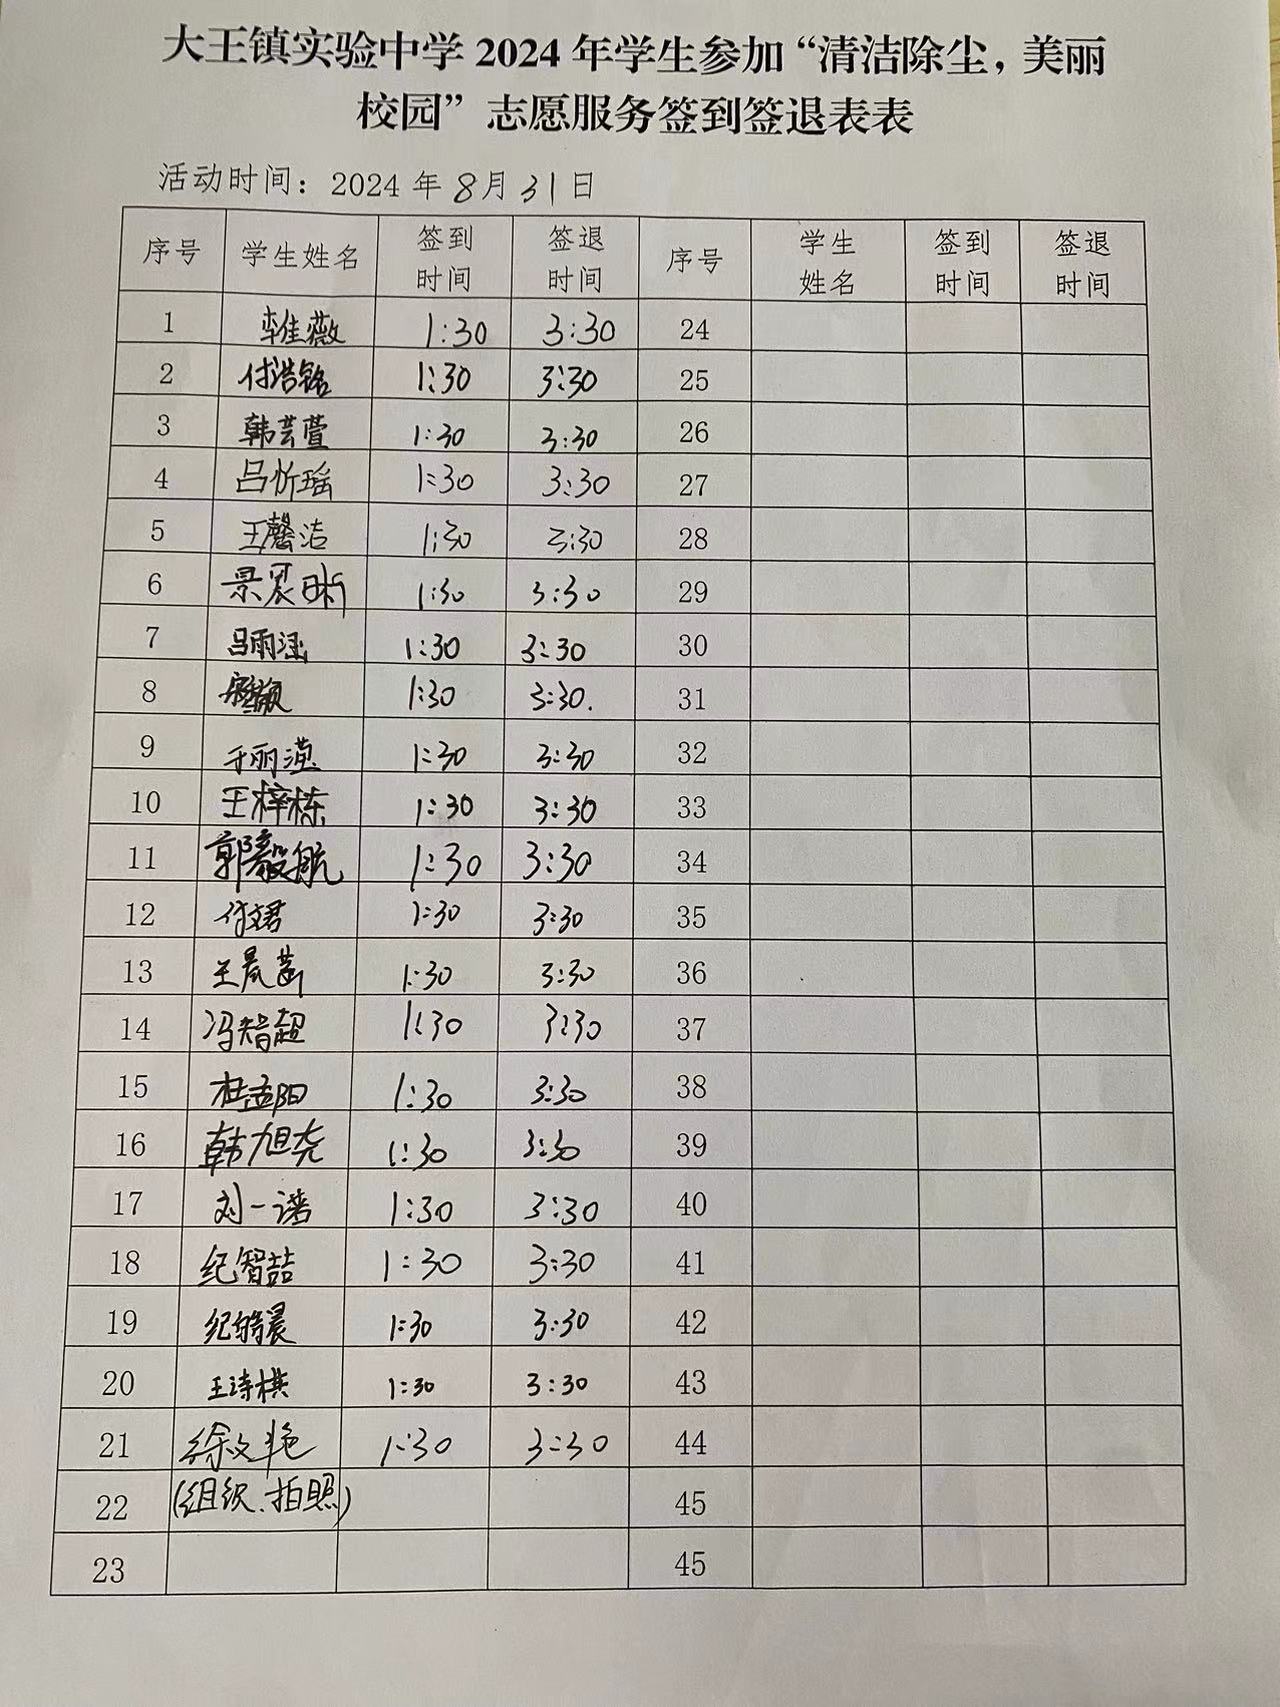 大王镇实验中学 2024 年学生参加“清洁除尘，美丽
校园”志愿服务签到签退表表
活动时间：2024 年 8月 31日
序号 学生姓名 签到时间 签退时间 序号 学生姓名 签到时间 签退时间
1 李佳薇 1:30 3:30 24
2 付浩铭 1:30 3:30 25
3 韩芸萱 1:30 3:30 26
4 吕忻瑶 1:30 3:30 27
5 王馨洁 1:30 3:30 28
6 1:30 3:30 29
7 吕雨涵 1:30 3:30 30
8 1:30 3:30. 31
9 于丽滢 1:30 3:30 32
10 王梓栋 1:30 3:30 33
11 郭毅航 1:30 3:30 34
12 付文君 1:30 3:30 35
13 1:30 3:30 36
14 冯智超 1:30 3:30 37
15 杜孟阳 1:30 3:30 38
16 韩旭尧 1:30 3:30 39
17 刘一诺 1:30 3:30 40
18 纪智喆 1:30 3:30 41
19 1:30 3:30 42
20 王诗棋 1:30 3:30 43
21 徐文艳 1:30 3:30 44
22 (组织、拍照) 45
23 45